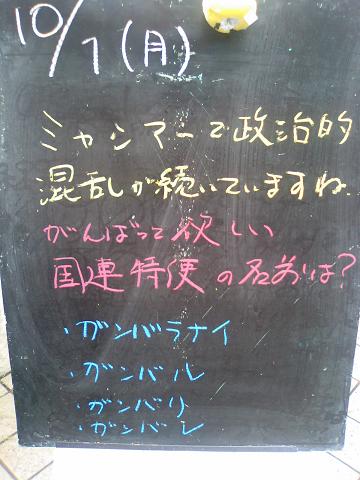 10/1(月)
ミャンマーで政治的
混乱しが続いていますね.
がんばって欲しい
国連特使の名前は?
・ガンバラナイ
・ガンバル
・ガンバリ
・ガンバレ